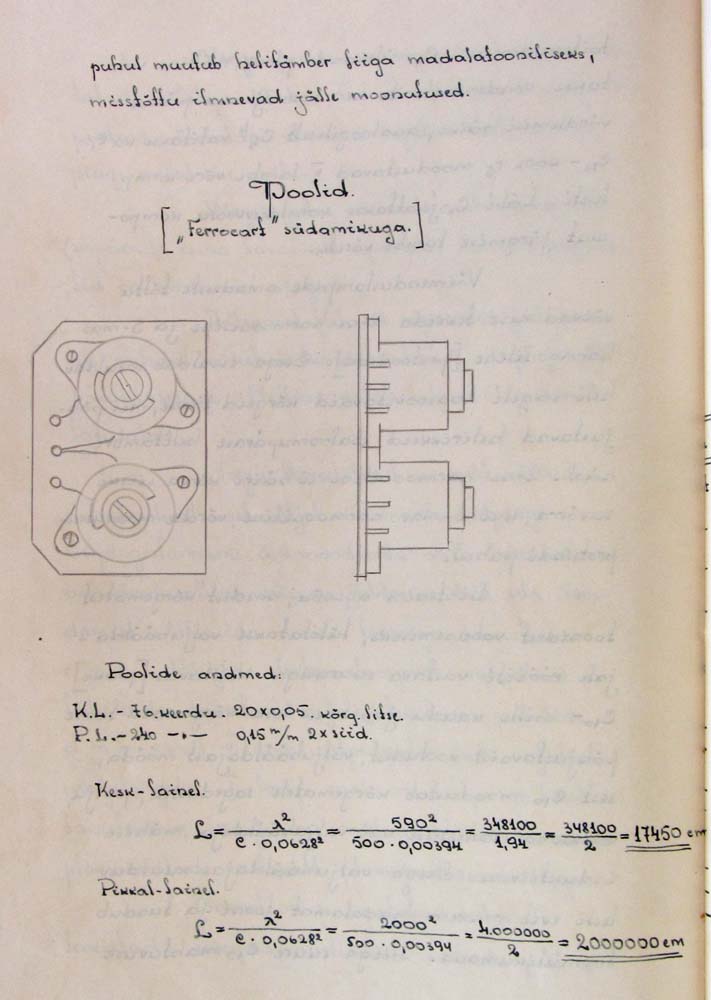 puhul muutub helitämber liiga madalatooniliseks,
misstõttu ilmnevad jälle moonutused.
Poolid.
[„Ferrocart" südamikuga.]
Poolide andmed:
K.L. - 76. keerdu. 20x0,05. kõrg. litse.
P.L. - 240 -"- 0,15 m/m 2x siid.
Kesk-lainel.
L = λ² / C · 0,0628² = 590² / 500 · 0,00394 = 348100 / 1,94 = 348100 / 2 = 17450 cm
Pikkal-lainel.
L = λ² / C · 0,0628² = 2000² / 500 · 0,00394 = 4.000000 / 2 = 2000000 cm